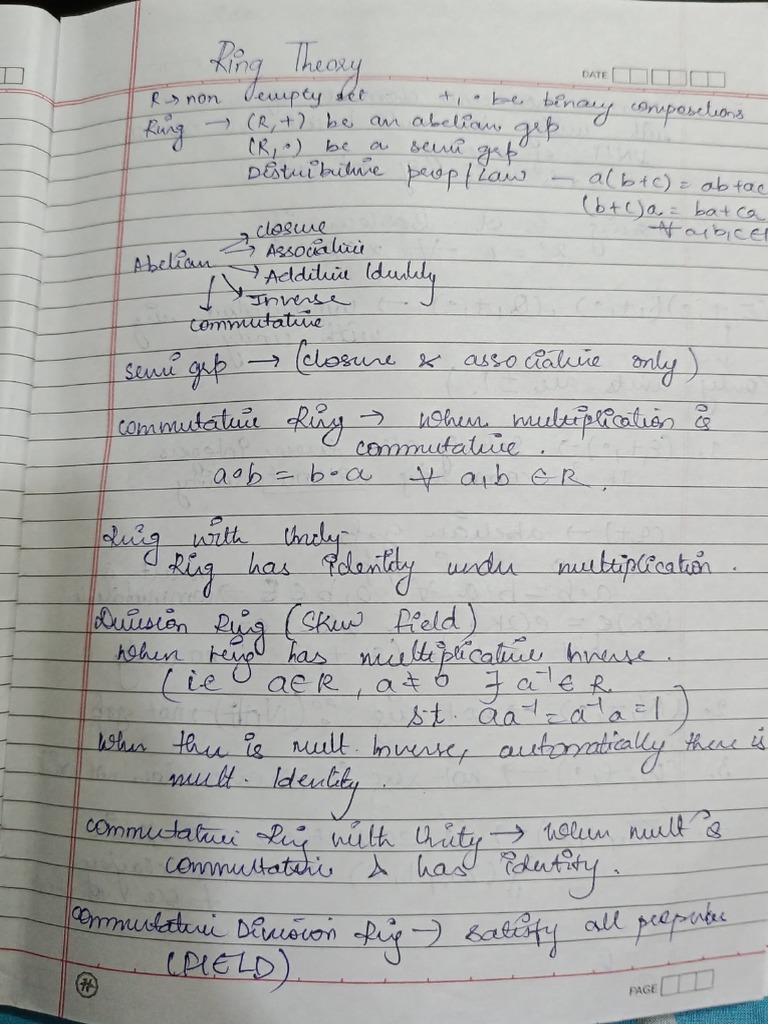 Ring Theory
DATE
R → non empty set +, • be binary compositions
Ring → (R, +) be an abelian grp
(R, •) be a semi grp
Distributive prop/Law — a(b+c) = ab+ac
(b+c)a = ba+ca
∀ a,b,c ∈
closure
Associative
Abelian → Additive Identity
Inverse
commutative
semi grp → (closure & associative only)
commutative Ring → when multiplication is
commutative.
a•b = b•a ∀ a,b ∈ R.
Ring with Unity-
Ring has identity under multiplication.
Division Ring (Skew field)
when ring has multiplicative Inverse.
(ie a∈R, a≠0 ∃ a⁻¹ ∈ R
s.t. aa⁻¹ = a⁻¹a = 1)
When there is mult. Inverse, automatically there is
mult. Identity.
commutative Ring with Unity → when multⁿ is
commutative & has identity.
commutative Division Ring → satisfy all properties
(FIELD)
PAGE